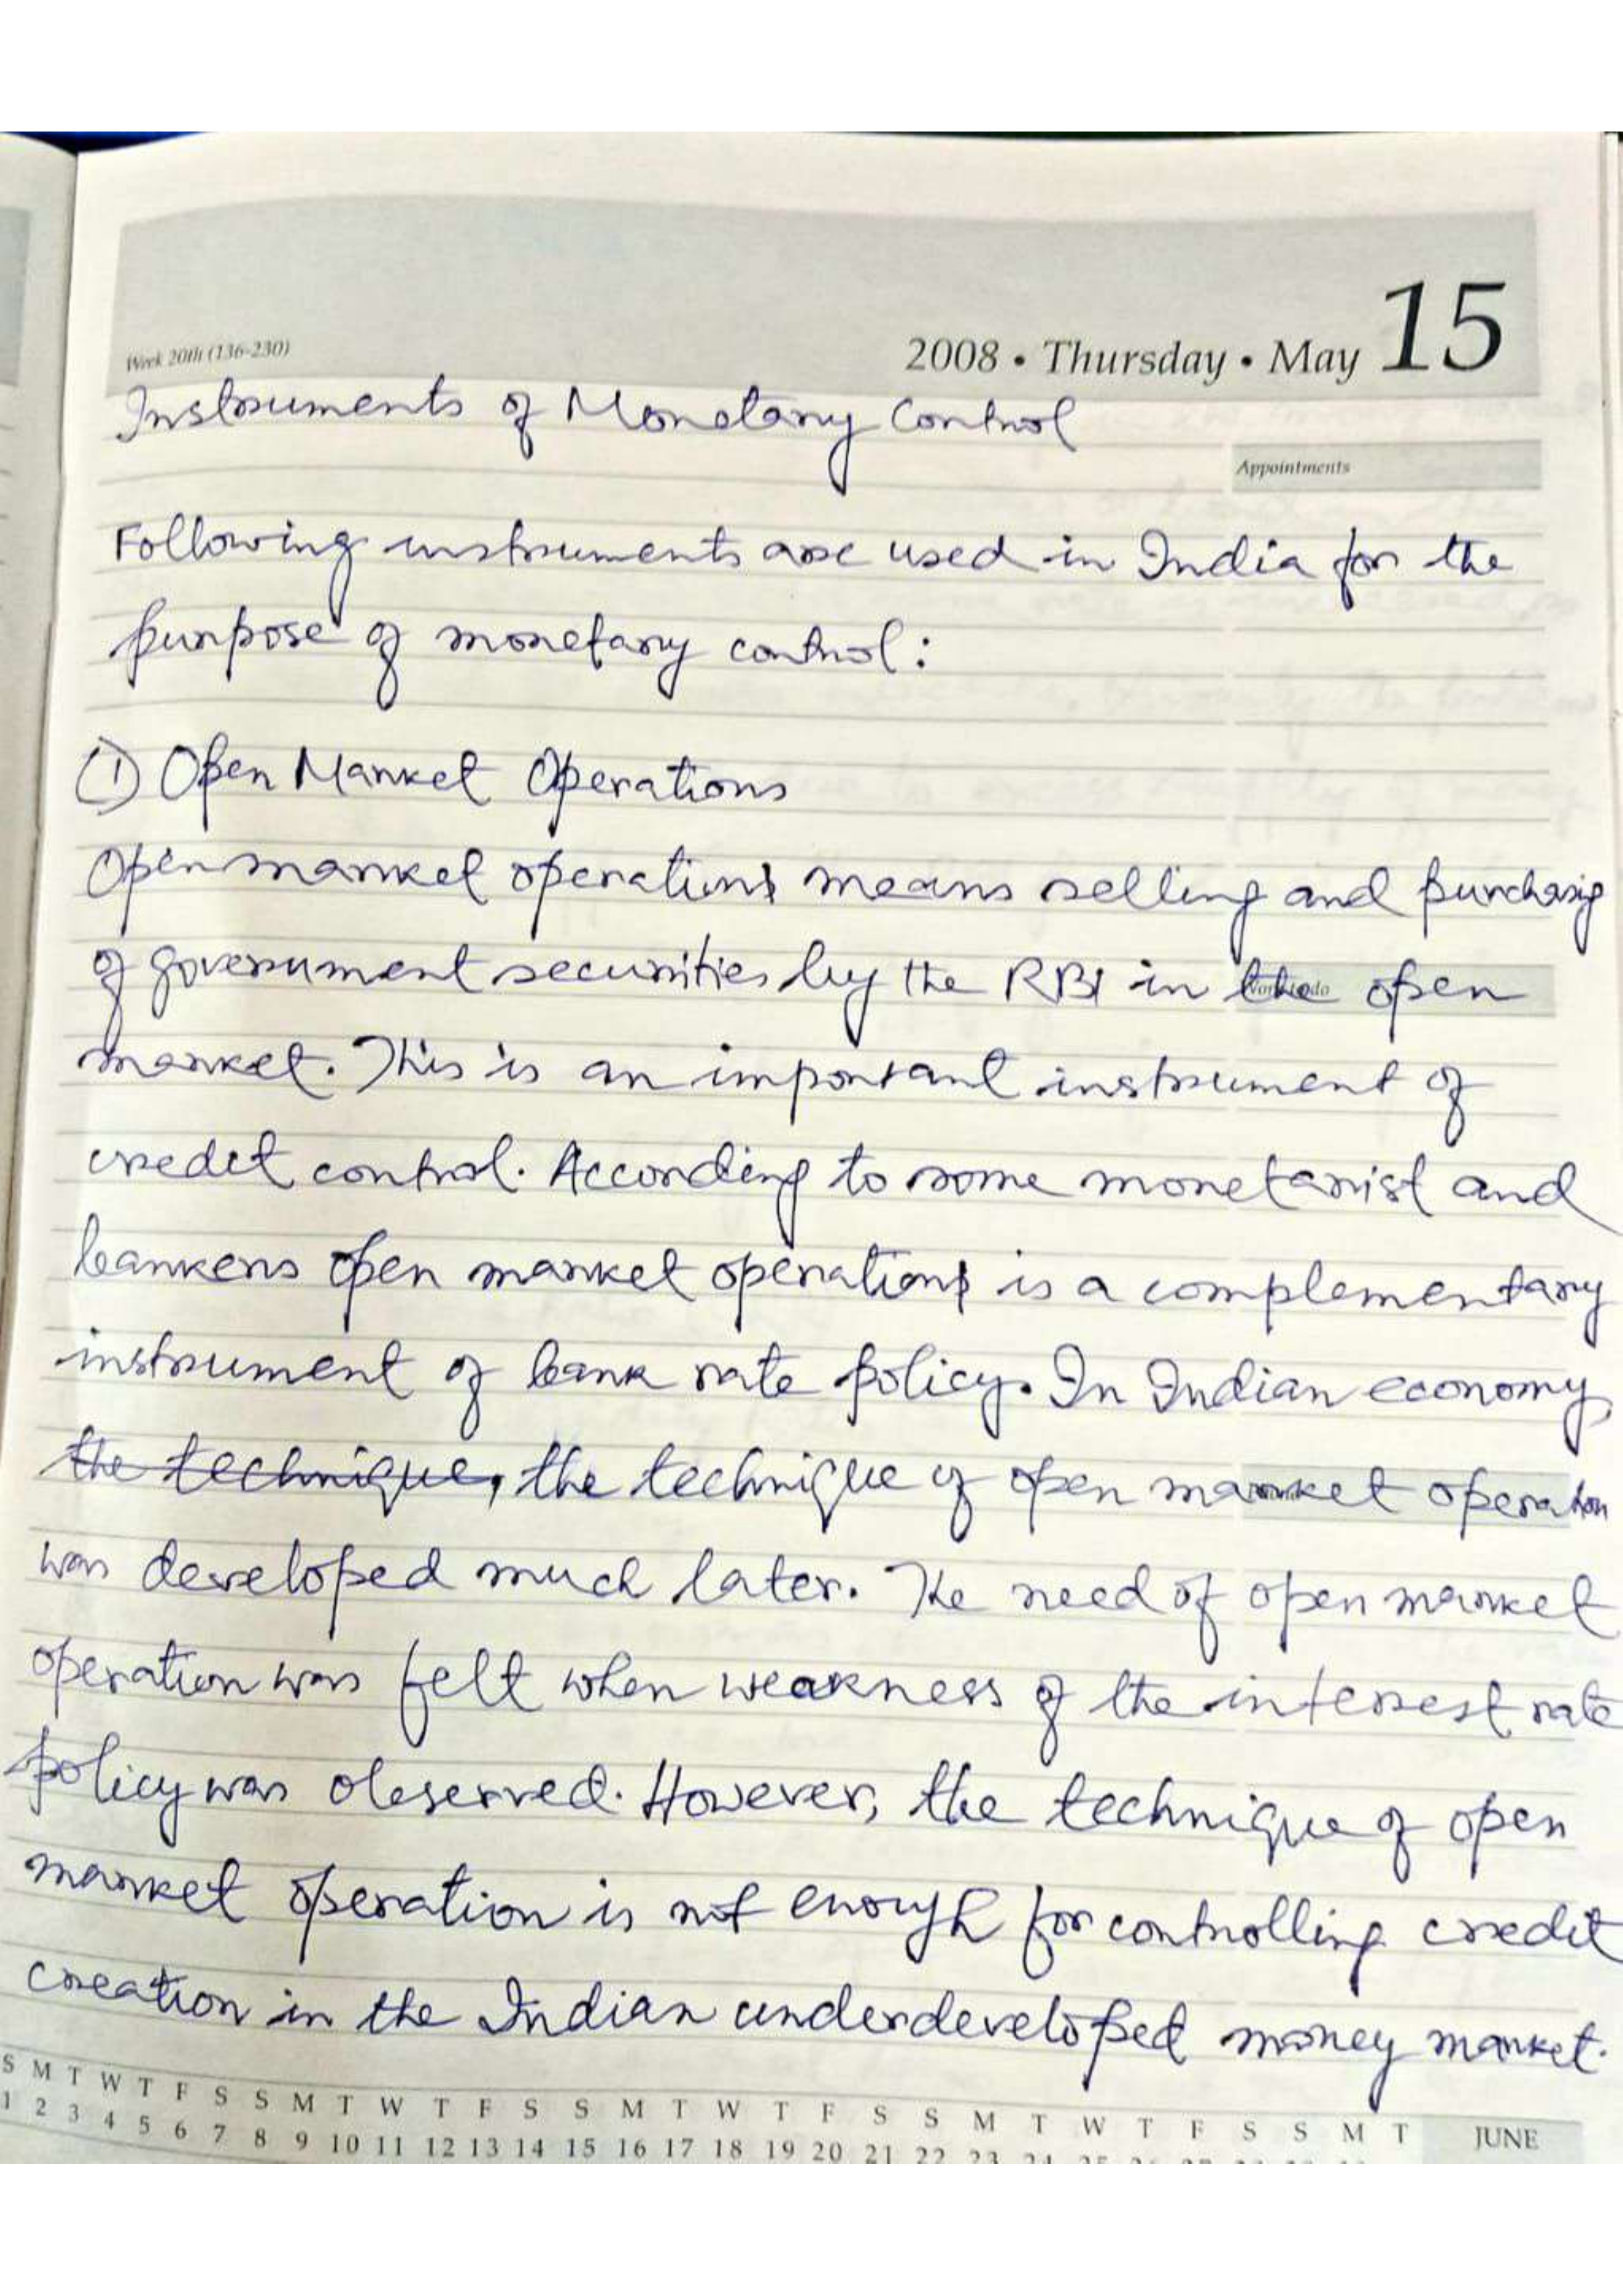 Week 20th (136-230)
2008 • Thursday • May 15
Instruments of Monetary Control
Appointments
Following instruments are used in India for the
purpose of monetary control:
① Open Market Operations
Open market operations means selling and purchasing
of government securities by the RBI in the open
market. This is an important instrument of
credit control. According to some monetarist and
bankers open market operations is a complementary
instrument of bank rate policy. In Indian economy,
the technique, the technique of open market operation
was developed much later. The need of open market
operation was felt when weakness of the interest rate
policy was observed. However, the technique of open
market operation is not enough for controlling credit
creation in the Indian underdeveloped money market.
S M T W T F S S M T W T F S S M T W T F S S M T W T F S S M T JUNE
1 2 3 4 5 6 7 8 9 10 11 12 13 14 15 16 17 18 19 20 21 22 23